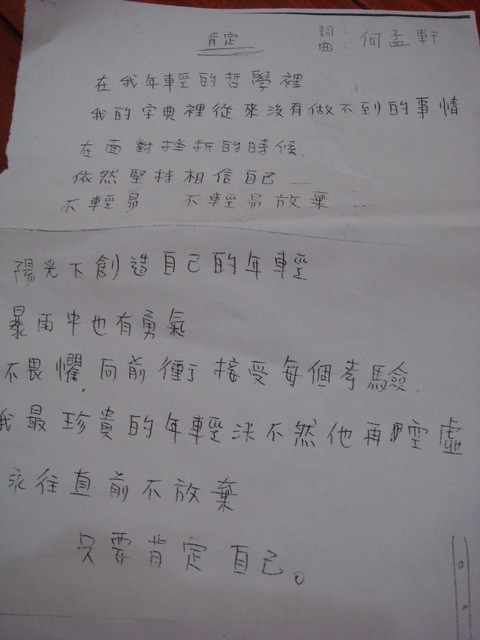 肯定
詞:
曲:
何孟軒
在我年輕的哲學裡
我的字典裡從來沒有做不到的事情
在面對挫折的時候.
依然堅持相信自己......
不輕易 不輕易放棄......
陽光下創造自己的年輕
暴雨中也有勇氣
不畏懼.向前衝 接受每個考驗.
我最珍貴的年輕決不然他再空虛
永往直前不放棄
只要肯定自己。